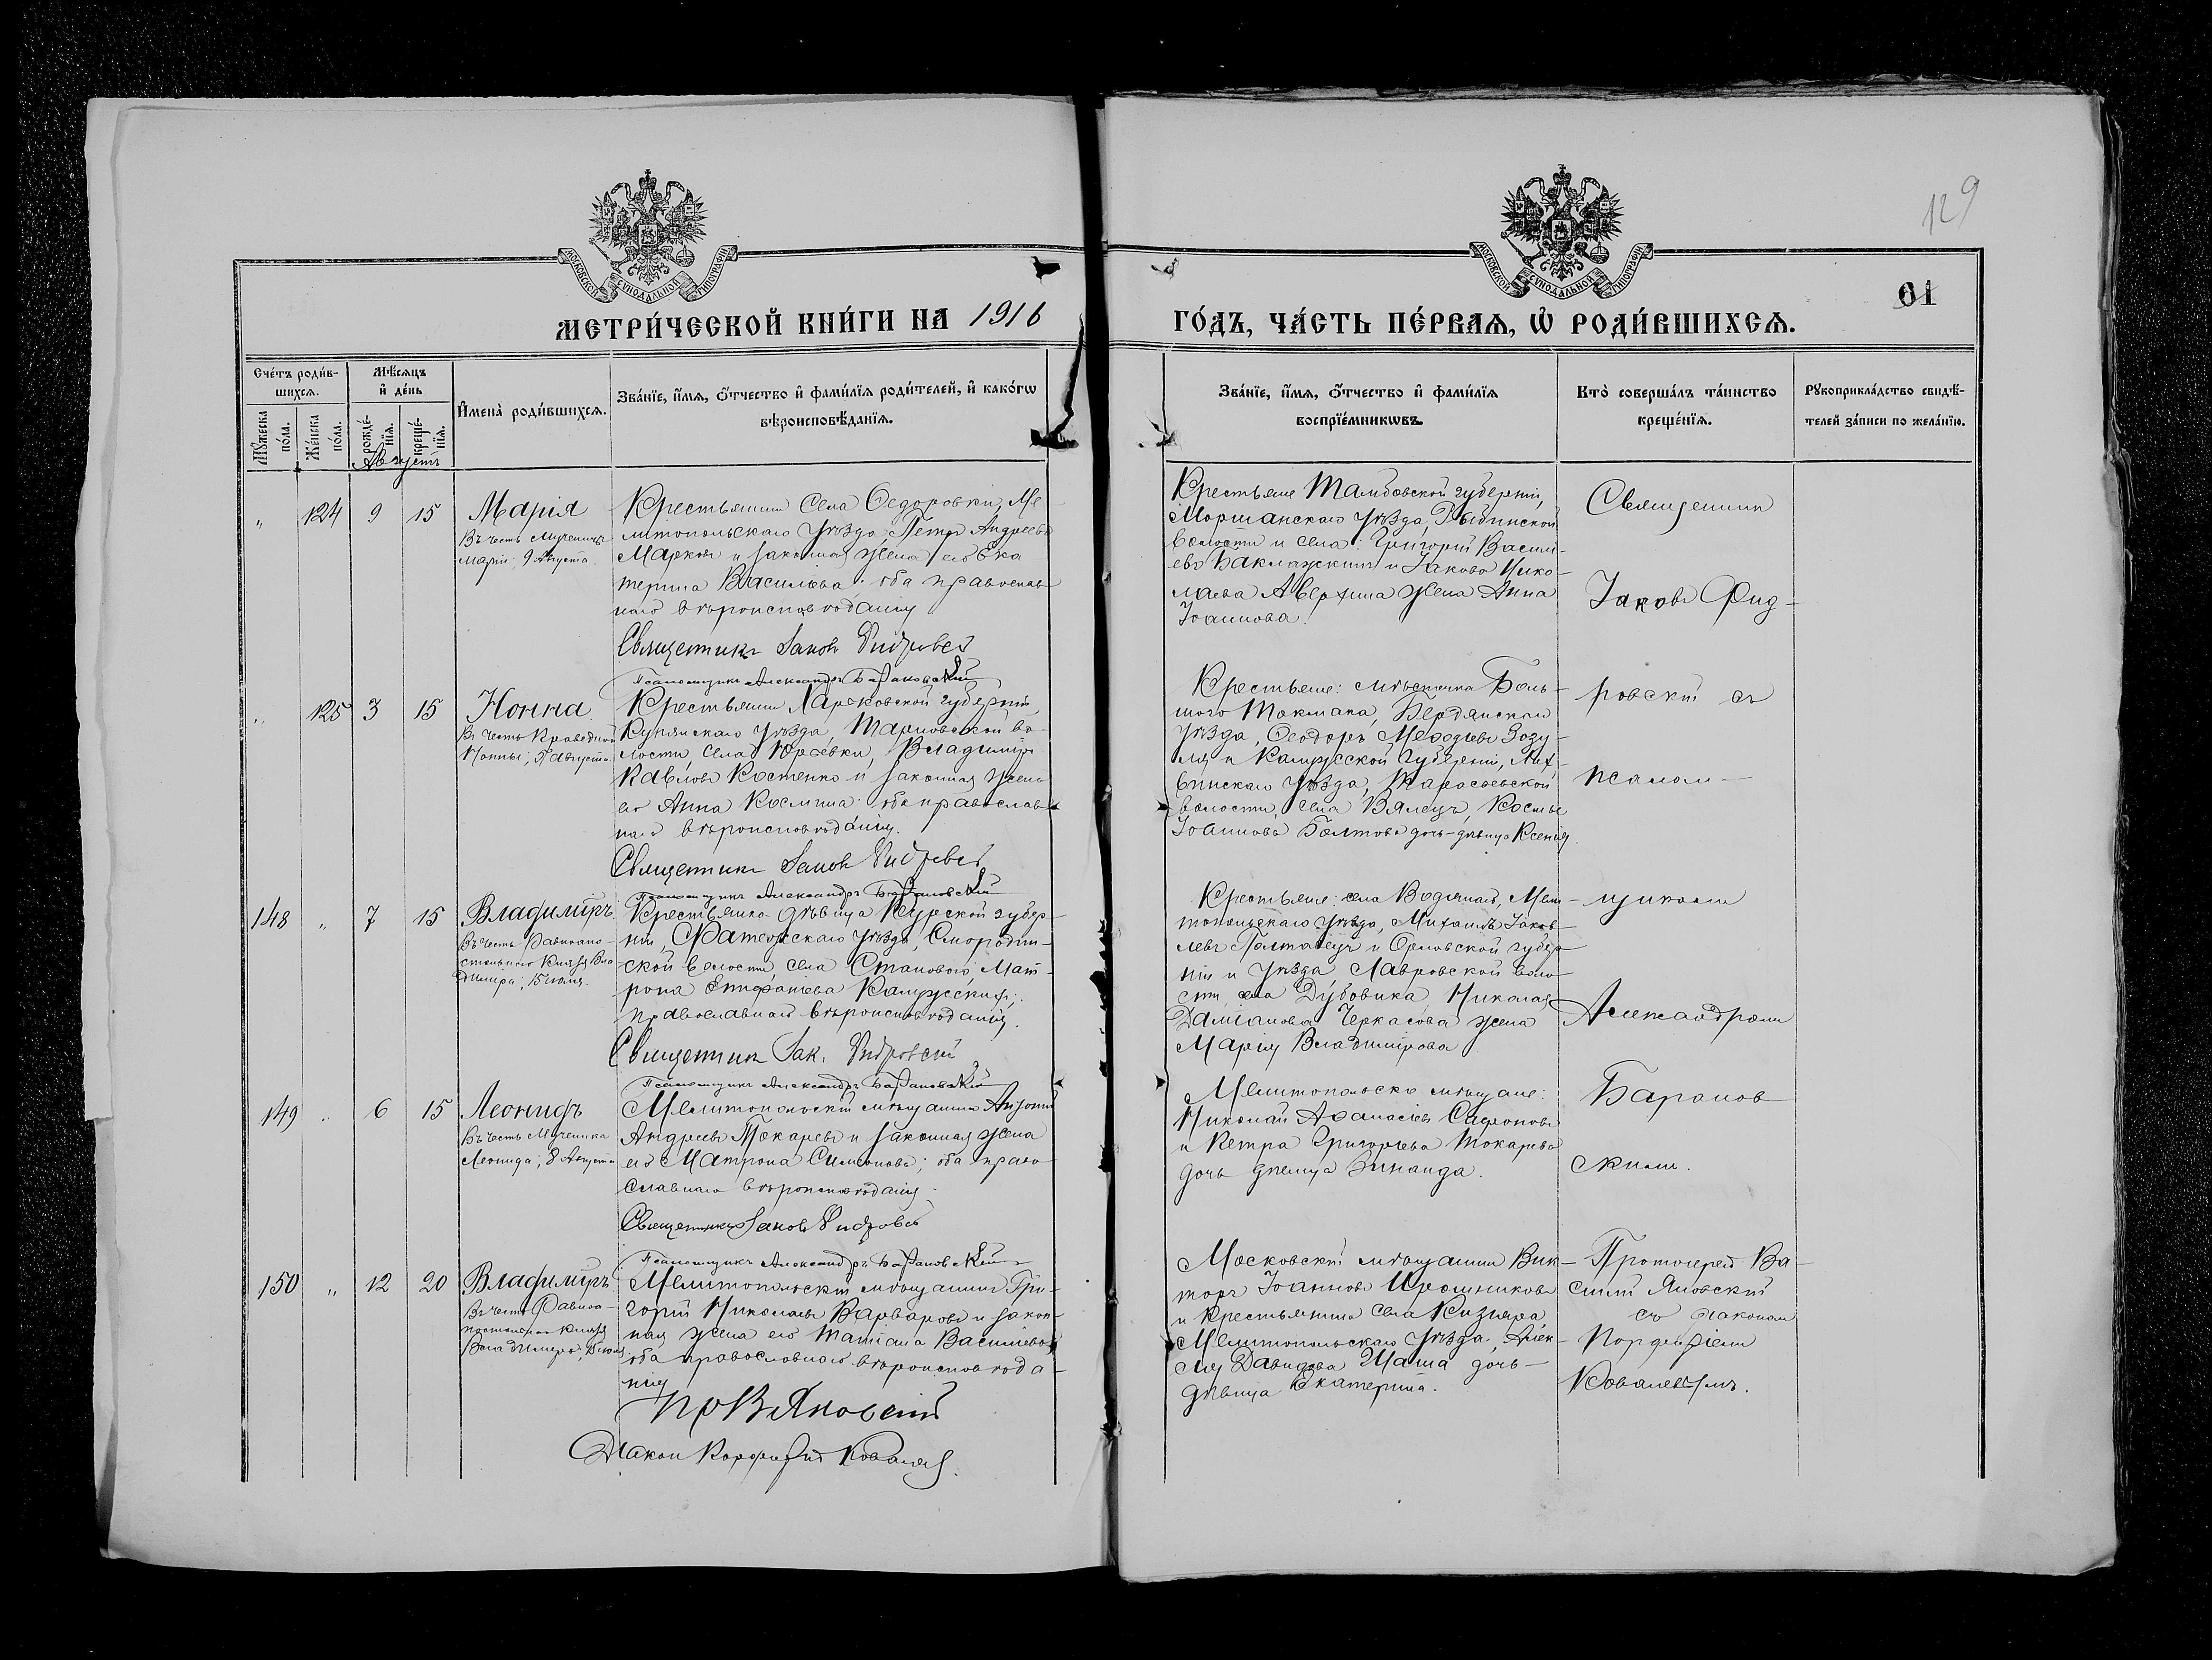 129
61
МОСКОВСКОЙ СѴНОДАЛЬНОЙ ТИПОГРАФІИ
МОСКОВСКОЙ СѴНОДАЛЬНОЙ ТИПОГРАФІИ
МЕТРИ́ЧЕСКОЙ КНИ́ГИ НА 1916
ГО́ДЪ, ЧА́СТЬ ПЕ́РВАЯ, Ѽ РОДИ́ВШИХСЯ.
Сче́тъ роди́в-
шихся.
Мѣ́сяцъ
и҆ де́нь
Мꙋ́жеска
по́ла.
Же́нска
по́ла.
рожде́-
нїя.
креще́-
нїя.
И҆мена̀ роди́вшихся.
Зва́нїе, и҆́мя, ѻ҆́тчество и҆ фами́лїя роди́телей, и҆ како́гѡ
вѣроисповѣ́данїя.
Зва́нїе, и҆́мя, ѻ҆́тчество и҆ фами́лїя
воспрїе́мникѡвъ.
Кто̀ соверша́лъ та́инство
креще́нїя.
Рꙋкоприкла́дство свидѣ́-
телей за́писи по жела́нїю.
Августъ
„ 124 9 15
Марія
Въ честь Мученицы
Маріи; 9 Августа.
Крестьянинъ села Ѳедоровки, Ме
литопольскаго Уѣзда, Петръ Андреевъ
Марковъ и законная жена его Ека
терина Васильева; оба православ
наго вѣроисповѣданія
Священникъ Іаковъ
Псаломщикъ Александръ Барановскій
Крестьяне Тамбовской губерніи,
Моршанскаго Уѣзда, Рыбинской
волости и села: Григорій Василі-
евъ Баклажкинъ и Іакова Нико-
лаева Аверхина жена Анна
Іоаннова.
Священникъ
Іаковъ Фид-
„ 125 3 15
Нонна
Въ честь Праведной
Нонны; 5 Августа
Крестьянинъ Харьковской губерніи
Купянскаго Уѣзда, Тарновской во-
лости, села Юрьевки, Владиміръ
Павловъ Костенко и законная жена
его Анна Космина; оба православ
наго вѣроисповѣданія.
Священникъ Іаковъ
Псаломщикъ Александръ Барановскій
Крестьяне: мѣстечка Боль-
шого Токмака, Бердянскаго
Уѣзда, Ѳеодоръ Меѳодіевъ Зозу-
ля и Калужской губерніи, Лих-
винскаго Уѣзда,
волости, села Вялецъ, Космы
Іоаннова Болтова дочь-дѣвица Ксенія.
ровскій съ
псалом-
148 „ 7 15
Владиміръ
Въ честь Равноапо-
стольнаго Князя Вла
диміра; 15 Іюля.
Крестьянка дѣвица Курской губер-
ніи, Фатежскаго Уѣзда, Смородин-
ской волости, села Становаго, Мат-
рона Епифаніева Калужскихъ;
православнаго вѣроисповѣданія.
Священникъ Іак.
Псаломщикъ Александръ Барановскій
Крестьяне: села Водянаго, Мели
топольскаго Уѣзда, Михаилъ Іаков-
левъ Полтавецъ и Орловской губер
ніи и Уѣзда Лавровской воло-
сти, села Дубовика, Николая
Даміанова Черкасова жена
Марія Владимірова
щикомъ
Александромъ
149 „ 6 15
Леонидъ
Въ честь Мученика
Леонида; 8 Августа
Мелитопольскій мѣщанинъ Антоній
Андреевъ Токаревъ и законная жена
его Матрона Симеонова; оба право
славнаго вѣроисповѣданія.
Священникъ Іаковъ
Псаломщикъ Александръ Барановскій
Мелитопольскіе мѣщане:
Николай Аѳанасіевъ Сафоновъ
и Петра Григорьева Токарева
дочь дѣвица Зинаида.
Баранов
скимъ.
150 „ 12 20
Владиміръ
Въ честь Равноа-
постольнаго Князя
Владиміра; 15 Іюля
Мелитопольскій мѣщанинъ Гри-
горій Николаевъ Варваровъ и закон-
ная жена его Татіана Василіева;
оба православнаго вѣроисповѣда-
нія
Пр В Яновскій
Діаконъ Порфирій Коваль
Московскій мѣщанинъ Вик-
торъ Іоанновъ Ирошниковъ
и крестьянина села Кизіяра,
Мелитопольскаго Уѣзда, Алек-
сія Давидова Шаша дочь-
дѣвица Екатерина.
Протоіерей Ва-
силій Яновскій
съ діакономъ
Порфиріемъ